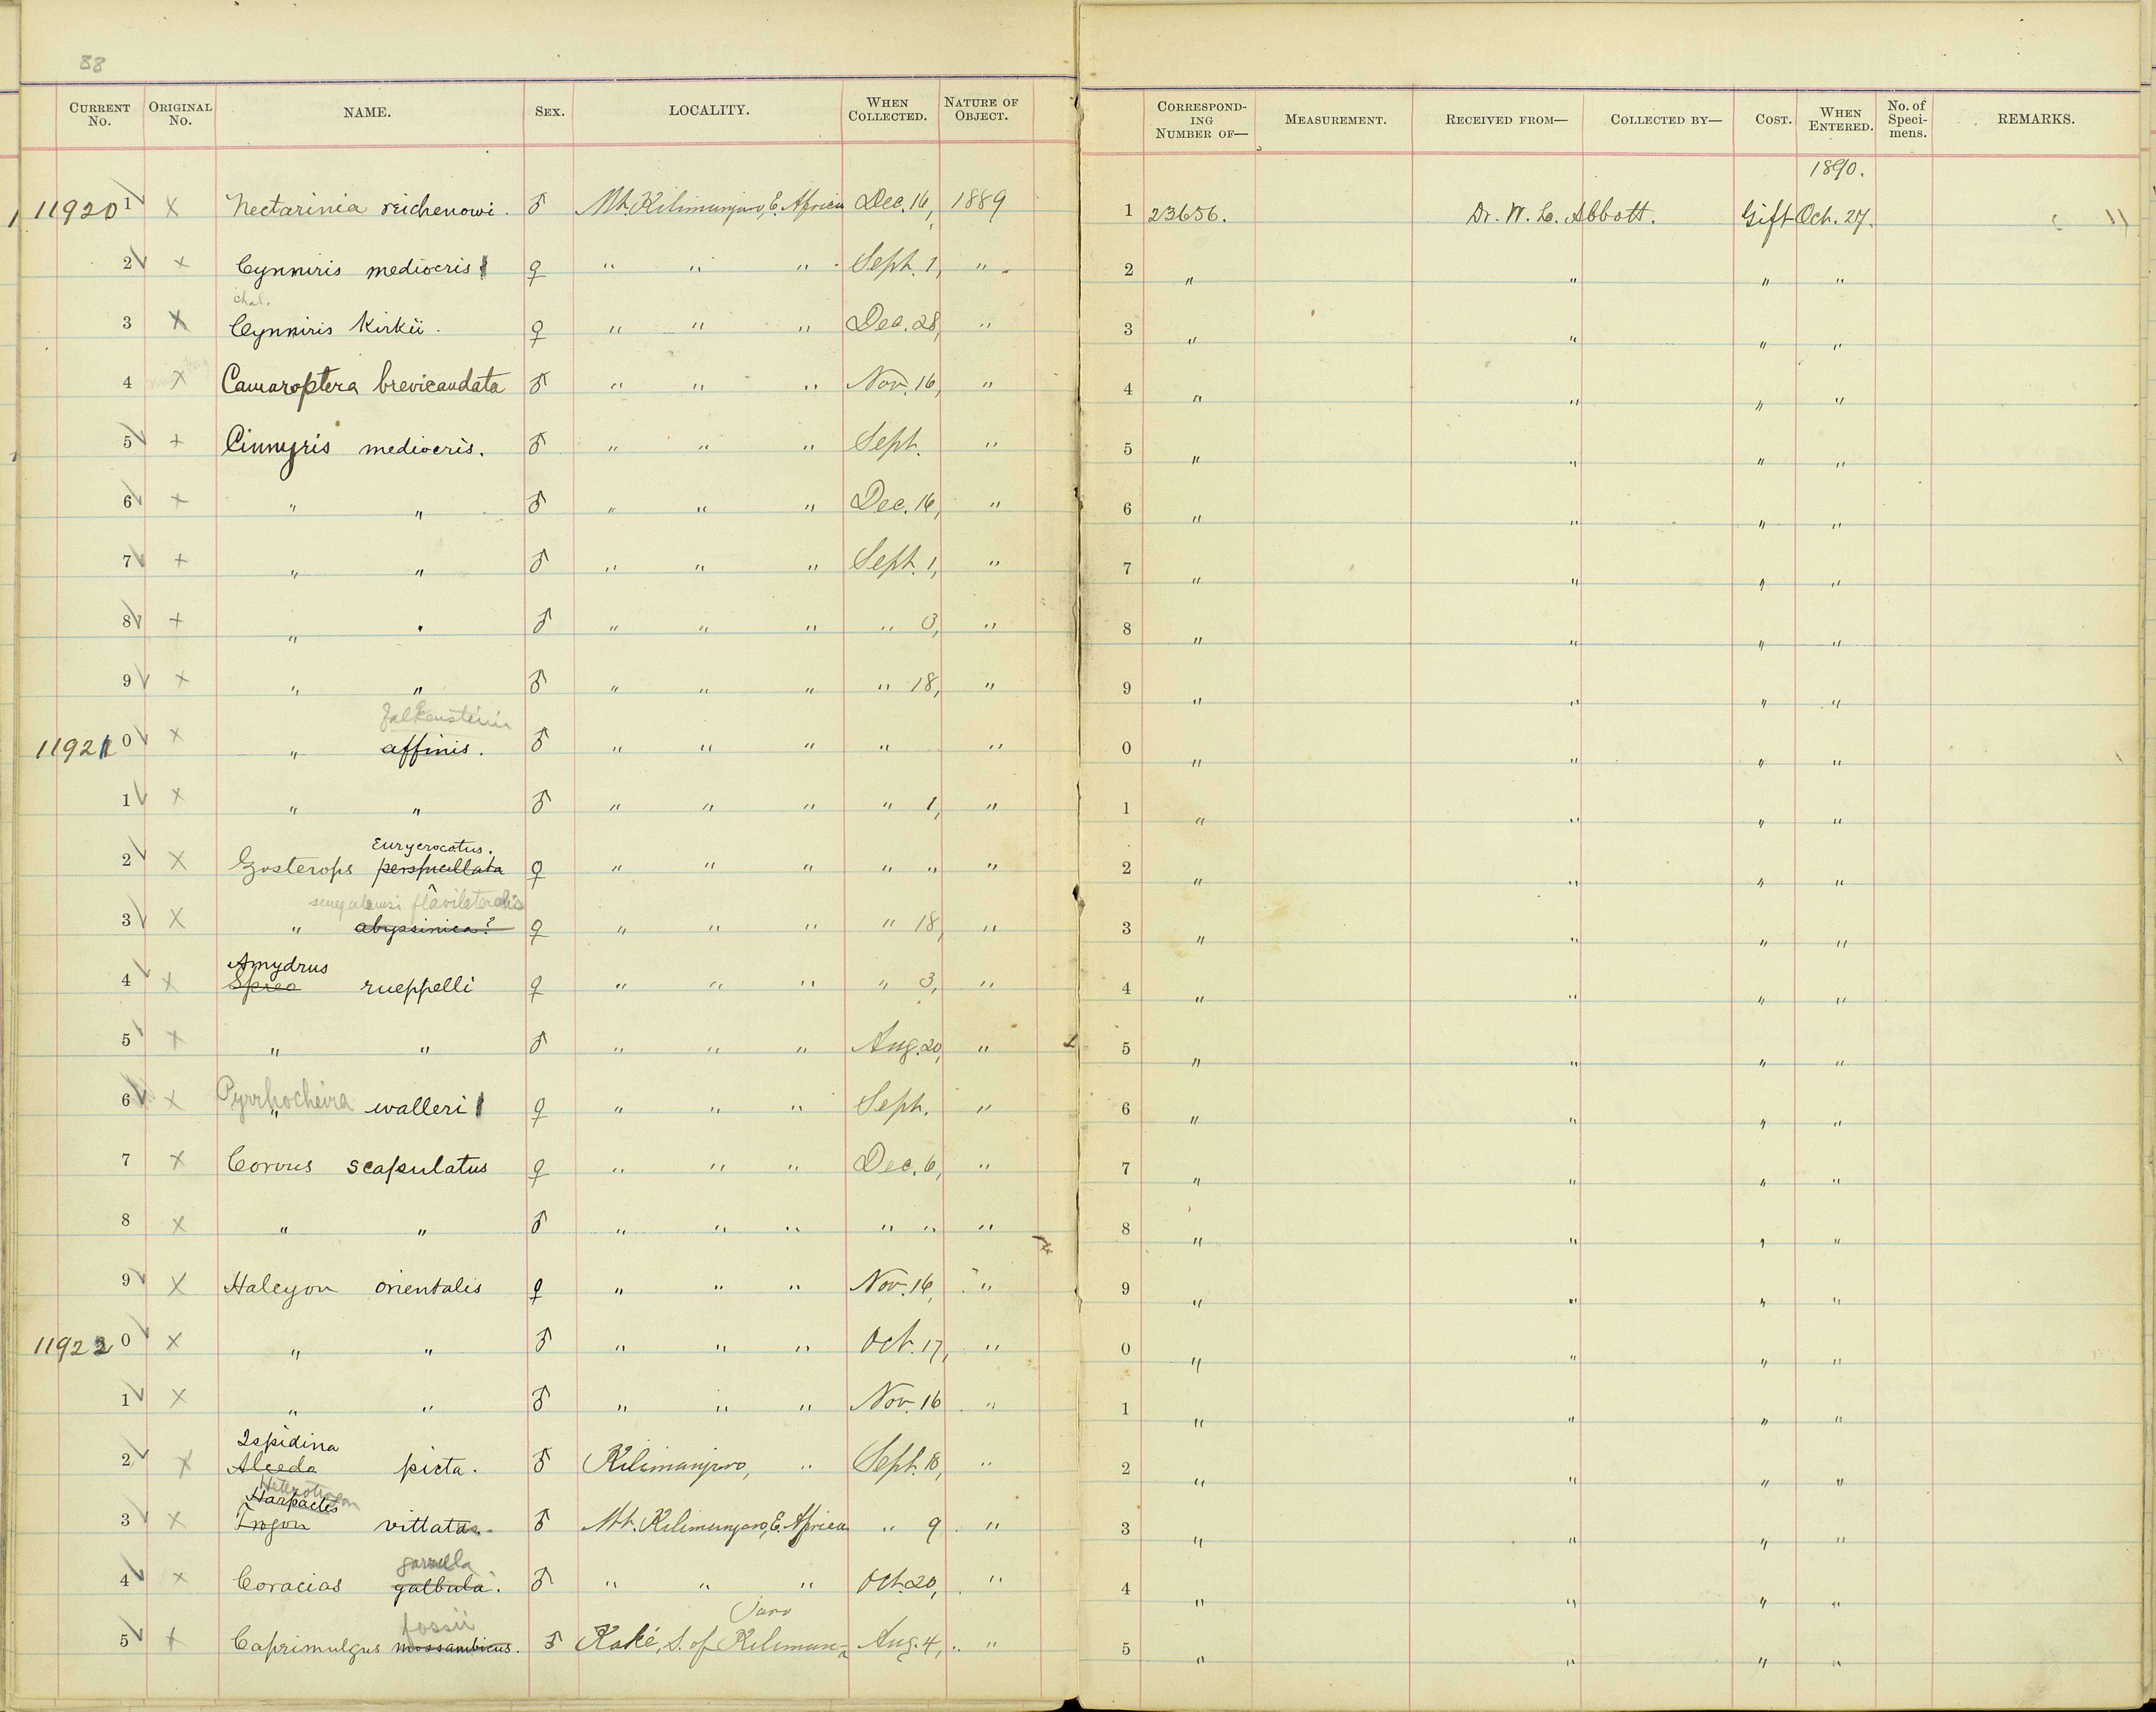 88
CURRENT No. ORIGINAL No. NAME. SEX. LOCALITY. WHEN COLLECTED. NATURE OF OBJECT. CORRESPONDING NUMBER OF— MEASUREMENT. RECEIVED FROM— COLLECTED BY— COST. WHEN ENTERED. No. of Specimens. REMARKS.
1890.
119201 X Nectarinia reichenowi. ♂ Mt. Kilimanjaro, E. Africa Dec. 16, 1889 1 23656. Dr. W. L. Abbott. Gift Oct. 27.
2 X Cynniris mediocris ♀ " " " Sept. 1, " 2 " " " "
chal.
3 X Cynniris Kirkii. ♀ " " " Dec. 28, " 3 " " " "
4 X Camaroptera brevicaudata ♂ " " " Nov. 16, " 4 " " " "
5 + Cinnyris mediocris. ♂ " " " Sept. " 5 " " " "
6 + " " ♂ " " " Dec. 16, " 6 " " " "
7 + " " ♂ " " " Sept. 1, " 7 " " " "
8 + " " ♂ " " " " 3, " 8 " " " "
9 X " " ♂ " " " " 18, " 9 " " " "
falkensteini
119210 X " affinis. ♂ " " " " " 0 " " " "
1 X " " ♂ " " " " 1, " 1 " " " "
Eurycrocatus.
2 X Zosterops perspicillata ♀ " " " " " " 2 " " " "
senegalensi flavilateralis
3 X " abyssinica? ♀ " " " " 18, " 3 " " " "
Amydrus
4 X Spreo rueppelli ♀ " " " " 3, " 4 " " " "
5 X " " ♂ " " " Aug. 20, " 5 " " " "
6 X Pyrrhocheira " walleri ♀ " " " Sept. " 6 " " " "
7 X Corvus scapulatus ♀ " " " Dec. 6, " 7 " " " "
8 X " " ♂ " " " " " " 8 " " " "
9 X Halcyon orientalis ♀ " " " Nov. 16, " 9 " " " "
119220 X " " ♂ " " " Oct. 17, " 0 " " " "
1 X " " ♂ " " " Nov. 16 " 1 " " " "
Ispidina
2 X Alcedo picta. ♂ Kilimanjaro, " Sept. 18, " 2 " " " "
Heterotrogon
Harpactes
3 X Trogon vittata. ♂ Mt. Kilimanjaro, E. Africa " 9 " 3 " " " "
garrula
4 X Coracias galbula. ♂ " " " Oct. 20, " 4 " " " "
fossii jaro
5 X Caprimulgus mossambicus. ♂ Kahé, S. of Kiliman- Aug. 4, " 5 " " " "